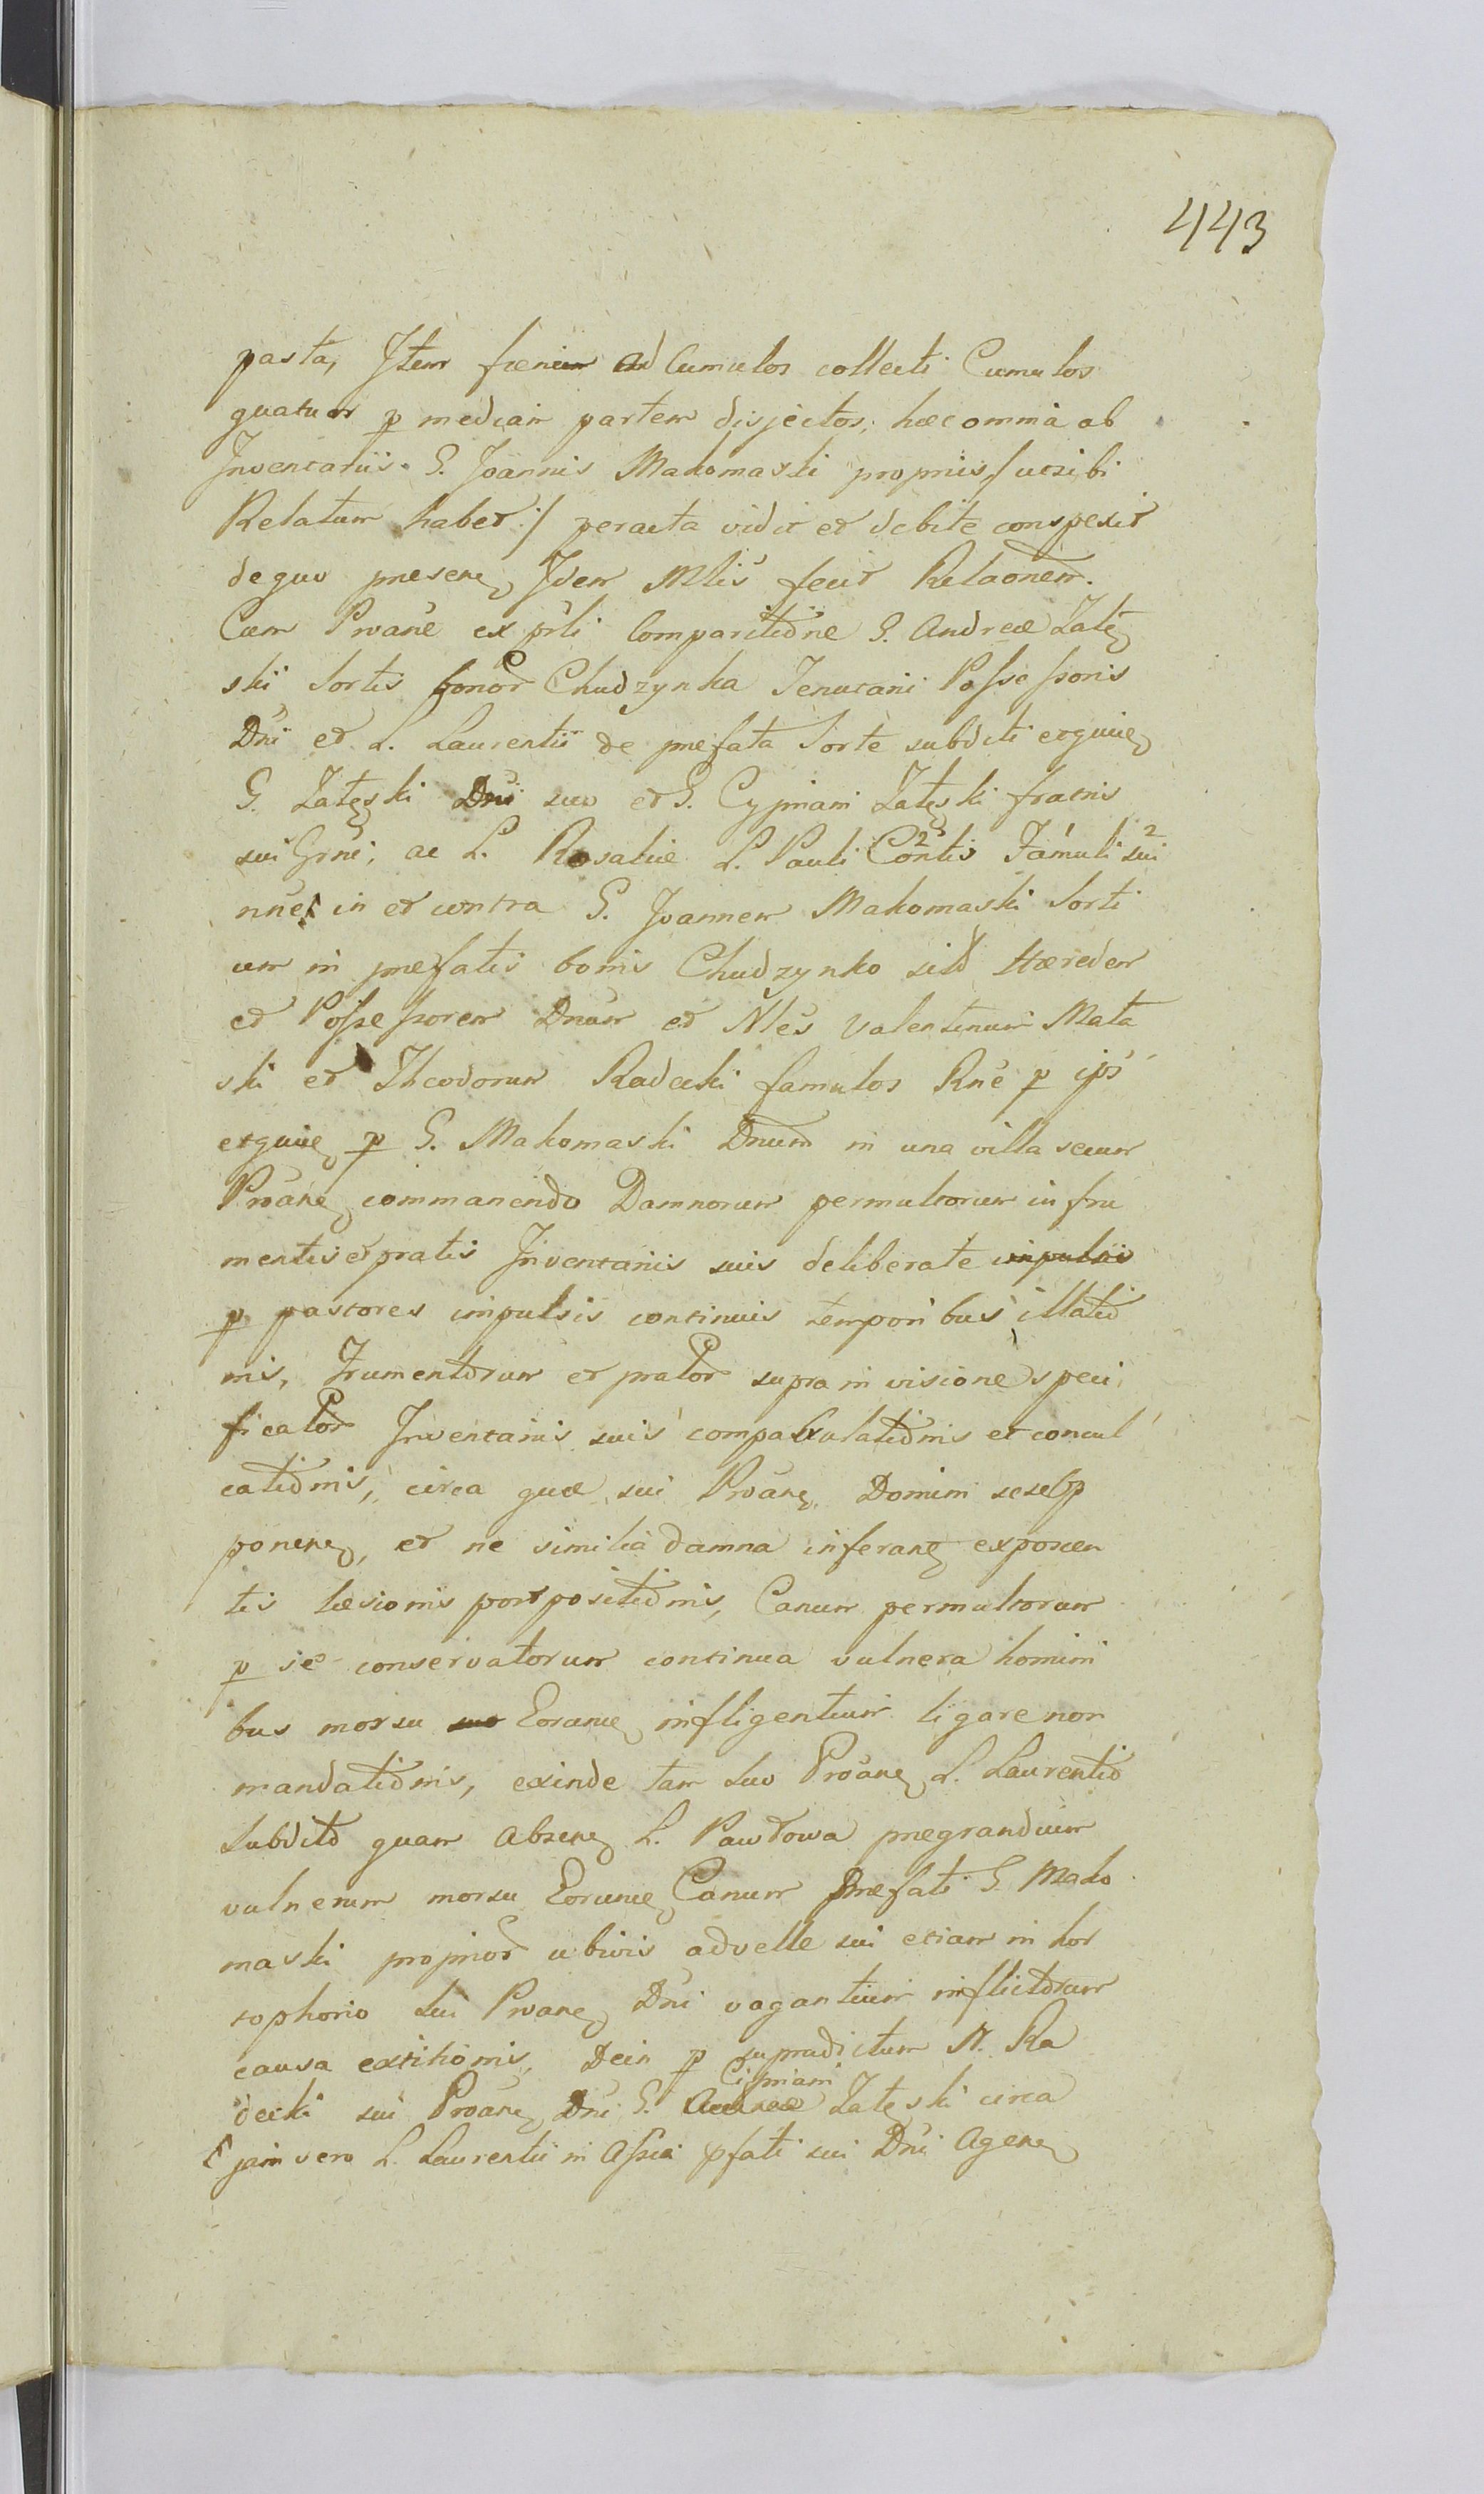 443
pasta, Item fœnum ad Cumulos collecti Cumulos
quatuor p mediam partem disjectos; hæc omnia ab
Inventariis G. Joannis Makomaski propriis, /utsibi
Relatum habet:/ peracta vidit et debite conspexit
de quo præsens Idem Mlis fecit Relaõnem.
Cum Proane ex prli Comparitione G. Andreæ Zalę
ski Sortis bonor Chudzynka Tenutarii Possessoris
Dni et L. Laurentii de præfata Sorte subditi ergque
G. Zalęski Dni suo et G. Cypriani Zalęski fratris
sui Grni, ac L. Rosaliæ L. Pauli Contis Famuli sui
nnes in et contra G. Joannem Makomaski Sorti
um in præfatis bonis Chudzynko sito Hæredem
et Possessorem Dnum et Nles Valentinum Mata
ski et Theodorum Radecki famulos Rne p ips
ergque p G. Makomaski Dnum in una villa secum
Proane commanendo Damnorum permultorum in fru
mentis et pratis Inventariis suis deliberate impulsis
p pastores impulsis continuis temporibus illatio
nis, Frumentorum et prator supra in visione speci
ficator Inventariis suis compabulationis et concul
cationis, circa quæ sui Proane Domini sese op
ponene, et ne similia damna inferane exposcen
tis læsionis postpositionis, Canum permultorum
p se conservatorum continua vulnera homini
bus morsu suo Eorumque infligentium ligare non
mandationis, exinde tam suo Proane L. Laurentio
Subdito quam absene L. Pawłowa prægrandium
vulnerum morsu Eorumque Canum Præfati G. Mako
maski proprior ubivis ad velle sui etiam in hor
tophorio sui Proane Dni vagantium inflictorum
causa extitionis, Dein p supradictum N. Ra
Cipriani
decki sui Proane Dni G. Andreæ Zalęski circa
jam vero L. Laurentii in Assia pfati sui Dni Agene